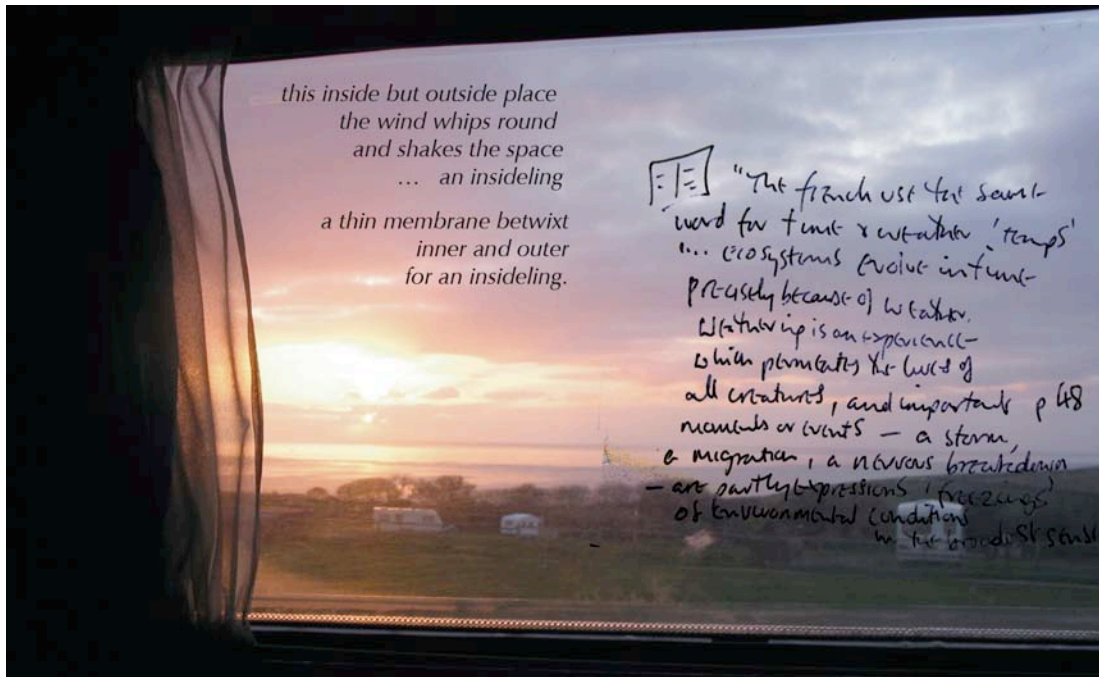 this inside but outside place
the wind whips round
and shakes the space
... an insideling
a thin membrane betwixt
inner and outer
for an insideling.
"The french use the same
word for time & weather 'temps'
"... ecosystems evolve in time
precisely because of weather.
Weathering is an experience
which permeates the lives of
all creatures, and important p 48
moments or events — a storm,
a migration, a nervous breakdown
— are partly expressions 'freezings'
of environmental conditions
in the broadest sense